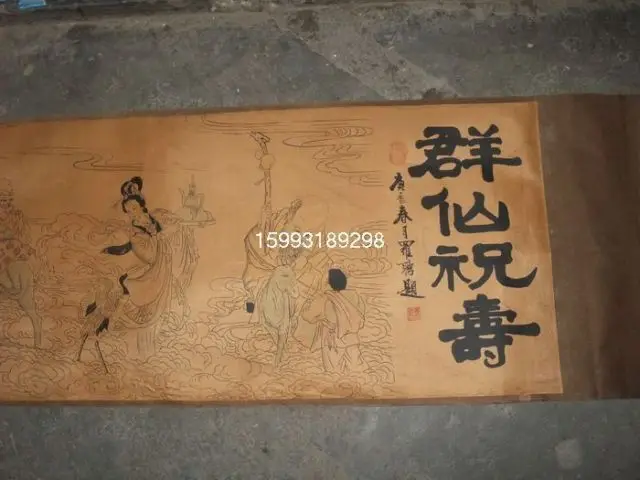 群仙祝壽
庚辰春月羅爾題
15993189298